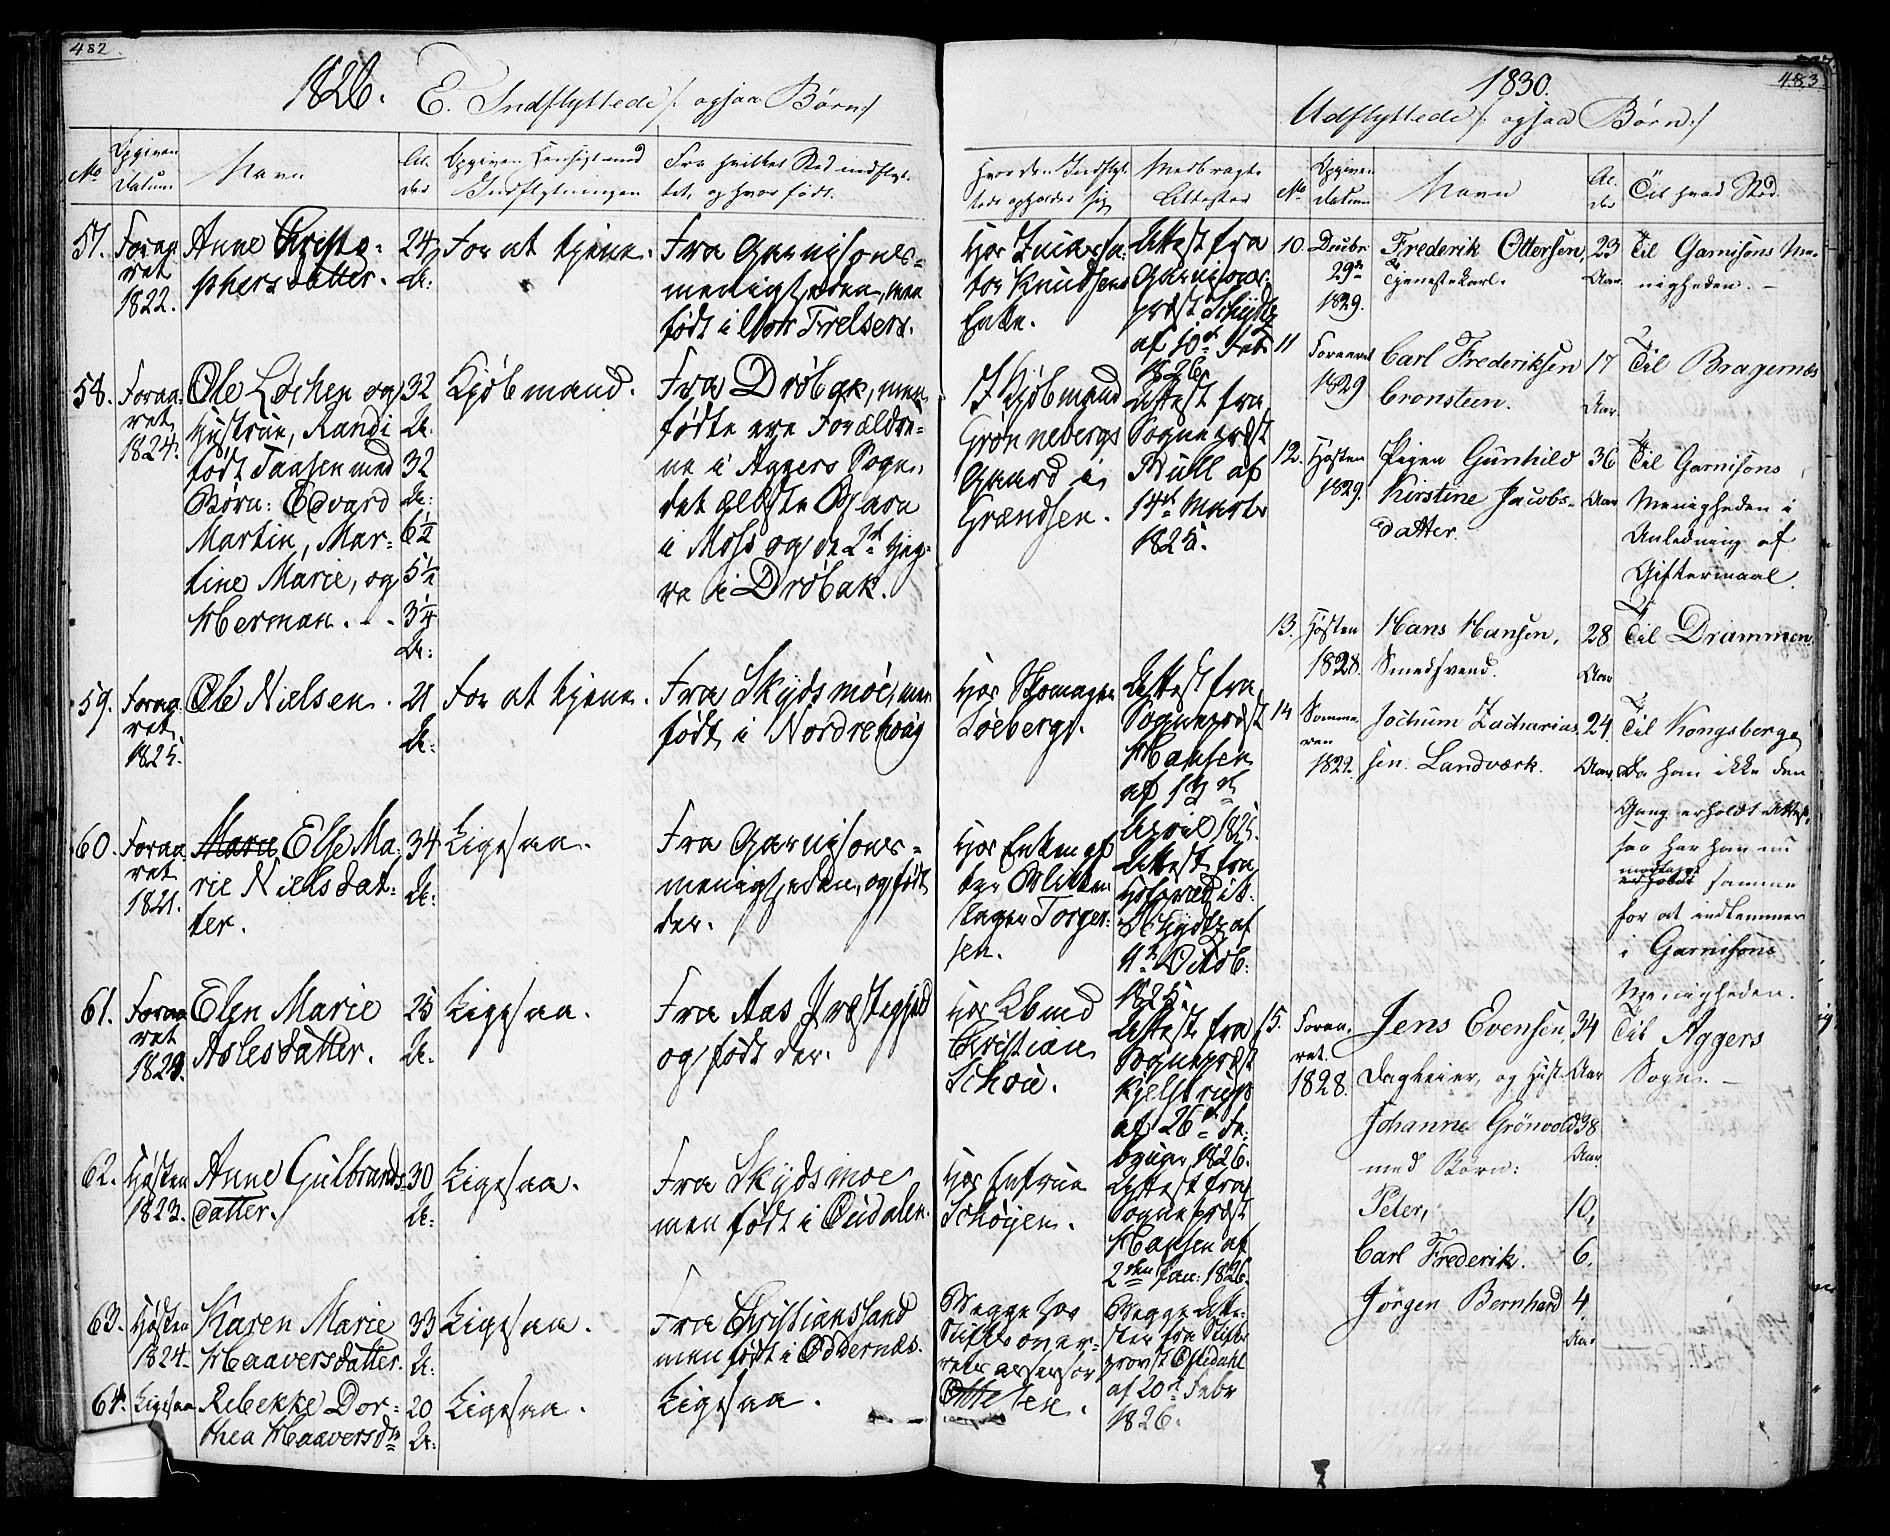 482
1826. E. Indflyttede /: ogsaa Børn :/
No
Opgiven Datum
Navn
Alder
Opgiven Hensigt med Indflytningen
Fra hvilket Sted indflyttet, og hvor født.
Hvor den Indflyttede opholder sig
Medbragte Attester
57.
Foraaret 1822.
Anne Christophersdatter.
24 A:
For at tjene.
Fra Garnisons-
menigheden, men
født i Vor Frelsers.
Hos
Knudsens
Enke.
Attest fra
Garnisons-
præst Schydtz
af 10de Feb:
1826.
58.
Foraaret 1824.
Ole Lochen og
Hustrue, Randi
født Taasen med
Børn: Edvard
Martin, Mar-
tine Marie, og
Herman.
32 A.
32 A:
6½
5½
3¼ A:
Kjøbmand.
Fra Drøbak, men
fødte ere Forældre-
ne i Aggers Sogn,
det ældste Barn
i Moss og de 2de yng-
re i Drøbak.
I Kjøbmand
Grønnebergs
Gaard i
Grændsen.
Attest fra
Sognepræst
Bull af
14de Marts
1825.
59.
Foraaret 1825.
Ole Nielsen.
21 A:
For at tjene.
Fra Skydsmoe, men
født i Nordrehoug
Hos Skomager
Loebergs.
Attest fra
Sognepræst
Hansen
af 13de
April 1825.
60.
Foraaret 1821.
Maren Else Ma-
rie Nielsdat-
ter.
34 A:
Ligesaa.
Fra Garnisons-
menigheden, og født
der.
Hos Enken
Torger-
sen.
Attest fra
Schydtz af
4de Octob:
1825.
61.
Foraaret 1823.
Elen Marie
Aslesdatter.
25 A.
Ligesaa.
Fra Aas Præstegjeld
og født der.
Hos
Christian
Schou.
Attest fra
Sognepræst
Kjelstrup
af 26de Fe-
bruar 1826.
62.
Høsten 1823.
Anne Gulbrands-
datter.
30 A:
Ligesaa.
Fra Skydsmoe
men født i Oudalen.
Hos Enkefrue
Schøyen.
Attest fra
Sognepræst
Hansen af
2den Jan: 1826.
63.
Høsten 1824.
Karen Marie
Haaversdatter.
33 A:
Ligesaa.
Fra Christianssand
men født i Oddernes.
Begge hos
Stiftsover-
retsassessor
Begge Atte-
ster fra Stifts-
provst Oftedahl
af 20de Febr
1826.
64.
Ligesaa
Rebekke Dor-
thea Haaversdtr
20 A:
Ligesaa.
Ligesaa.
483
1830.
Udflyttede /: ogsaa Børn :/
No
Opgiven Datum
Navn
Alder
Til hvad Sted
10.
Decbr 29de 1829.
Frederik Ottersen,
Tjenestekarl.
23 Aar
Til Garnisons Me-
nigheden. -
11
Foraaret 1829
Carl Frederiksen
Cronsteen.
17 Aar
Til Bragernæs
12.
Høsten 1829.
Pigen Gunhild
Kirstine Jacobs-
datter.
36 Aar
Til Garnisons
Menigheden i
Anledning af
Giftermaal.
13.
Høsten 1828.
Hans Hansen,
Smedsvend.
28 Aar
Til Drammen.
14
Sommeren 1829.
Jochum Zacharias-
sen Landværk.
24. Aar
Til Kongsberg,
Da han ikke den
Gang erholdt Attest,
saa har han nu
modtaget samme
for at indlemmes
i Garnisons
Menigheden.
15.
Foraaret 1828.
Jens Evensen,
Dagleier, og Hust.
Johanne Grönvold
med Børn:
Peter,
Carl Frederik.
Jörgen Bernhard
34 Aar
38 Aar
10,
6.
4. Aar
Til Aggers
Sogn. -